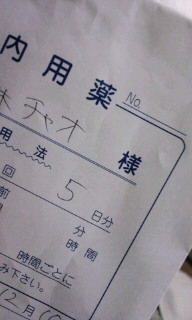 内用薬 No.
チャオ 様
用法
回 5 日分
前 分
時間
時間ごとに
み下さい。
12月